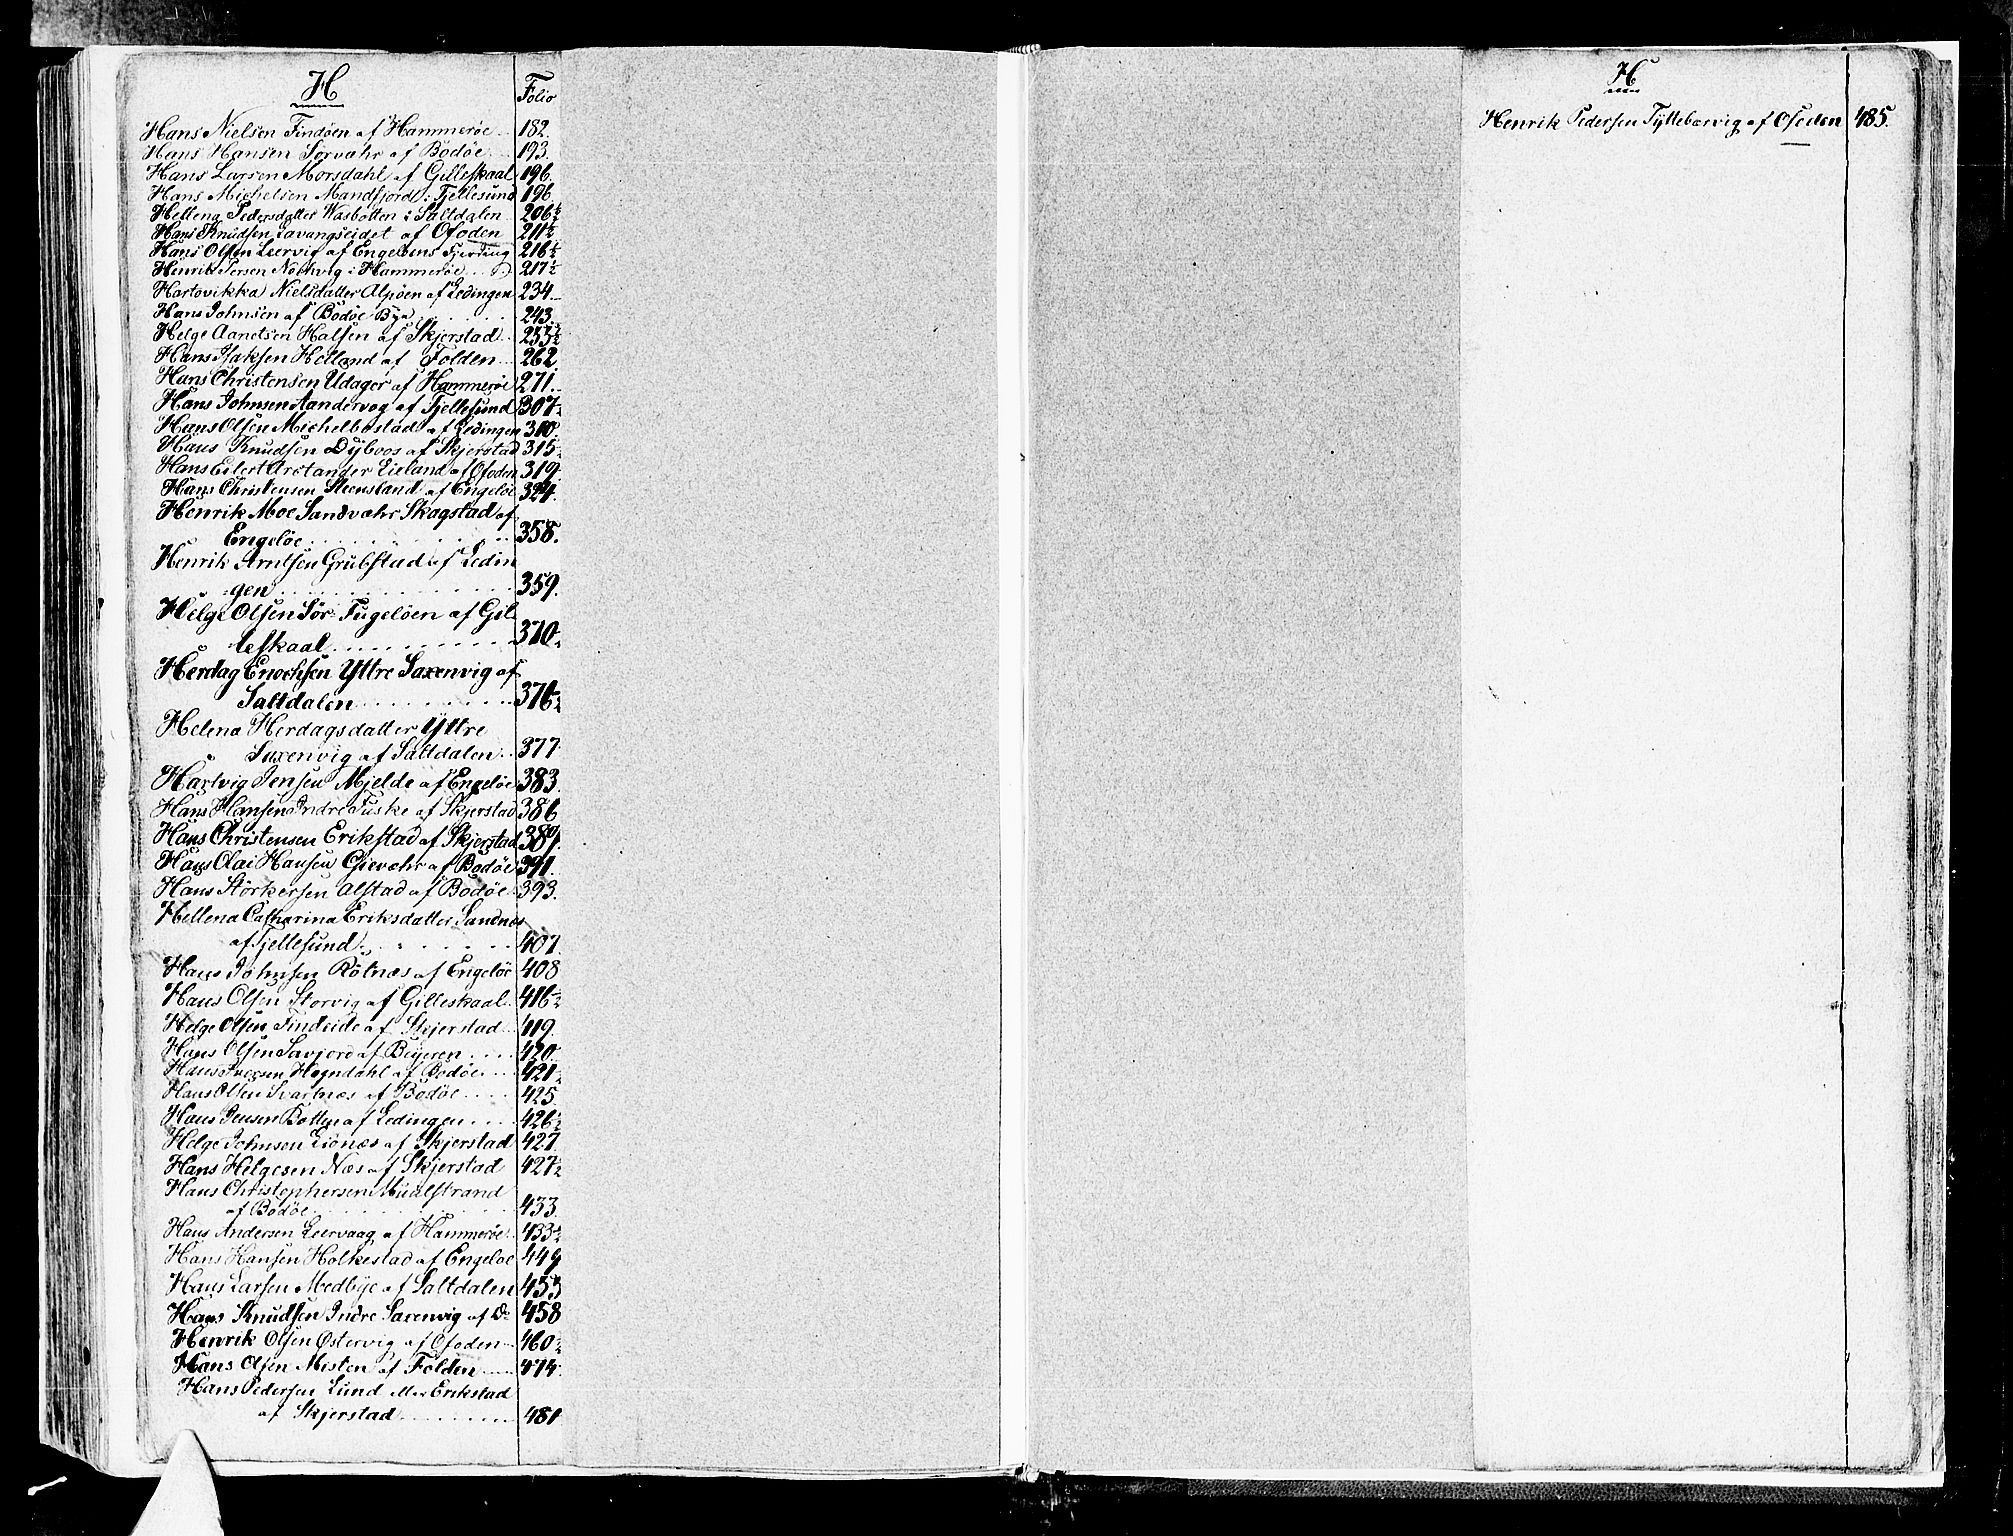 H
Folio
Hans Nielsen Findöen af Hammeröe 182.
Hans Hansen Sörvæhr af Bodöe 193.
Hans Larsen Morsdahl af Gilleskaal 196.
Hans Michelsen Mandfjord i Tjellesund 196
Hellena Pedersdatter Wasbotten i Saltdalen 206½
Hans Knudsen Lavangseidet af Ofoden 211½
Hans Olsen Leervig af Engelöens Fjerding 216½
Henrik Persen Nordvig i Hammeröe 217½
Hartvikka Nielsdatter Alpöen af Lödingen 234.
Hans Johnsen af Bodöe Bye 243.
Helge Arntsen Halsen af Skjerstad 253½
Hans Isaksen Helland af Folden 262
Hans Christensen Udager af Hammeröe 271.
Hans Johnsen Aandervog af Tjellesund 307½
Hans Olsen Michelbostad af Lödingen 310
Hans Knudsen Dybvos af Skjerstad 315½
Hans Eilert Arctander Lieland af Ofoden 319
Hans Christensen Steensland af Engelöe 324.
Henrik Moe Sandvæhr Skagstad af
Engelöe 358.
Henrik Arntsen Grubstad af Lödin
gen 359.
Helge Olsen Sör-Fugelöen af Gil
leskaal 370½
Herdag Enochsen Yttre Saxenvig af
Saltdalen 376½
Helena Herdagsdatter Yttre
Saxenvig af Saltdalen 377
Hartvig Jensen Mjelde af Engelöe 383.
Hans Hansen Indre Tuske af Skjerstad 386
Hans Christensen Erikstad af Skjerstad 389.
Hans Olai Hansen Gievæhr af Bodöe 391.
Hans Störkersen Alstad af Bodöe 393.
Hellena Catharina Eriksdatter Sandnes
af Tjellesund 407.
Hans Johnsen Rötnæs af Engelöe 408
Hans Olsen Storvig af Gilleskaal 416½
Helge Olsen Findeide af Skjerstad 419.
Hans Olsen Savjord af Beijeren 420.
Hans Iversen Hogndahl af Bodöe 421½
Hans Olsen Svartnæs af Bodöe 425
Hans Jensen Botten af Lödingen 426½
Helge Johnsen Liönæs af Skjerstad 427
Hans Helgesen Næs af Skjerstad 427½
Hans Christophersen Miialstrand
af Bodöe 433
Hans Andersen Leervaag af Hammeröe 433½
Hans Hansen Holkestad af Engelöe 449
Hans Larsen Medbye af Saltdalen 453
Hans Knudsen Indre Saxenvig af Do 458
Henrik Olsen Östervig af Ofoden 460½
Hans Olsen Misten af Folden 474.
Hans Pedersen Lund eller Erikstad
af Skjerstad 481
H
Henrik Pedersen Tyttebærvig af Ofoden 485.